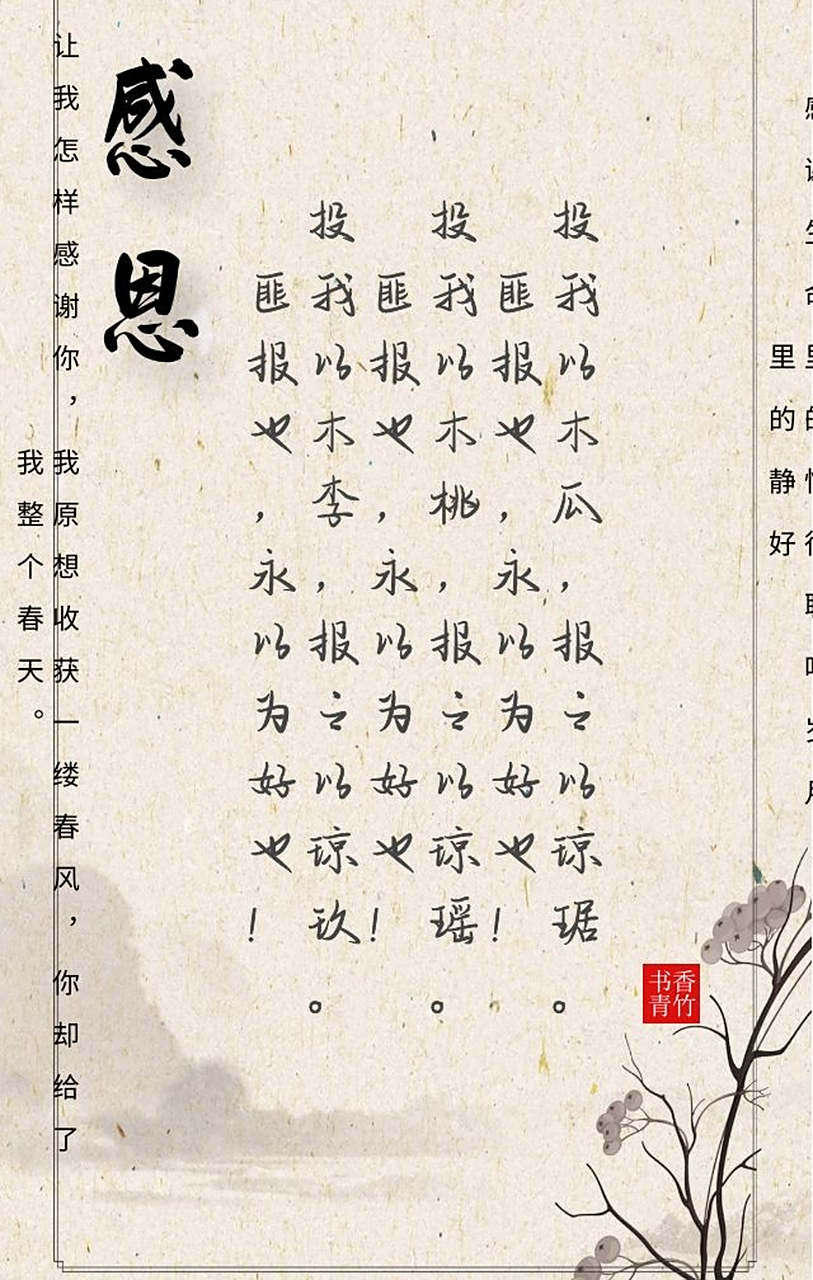 里的静好
香竹
书青
投我以木瓜，报之以琼琚。
匪报也，永以为好也！
投我以木桃，报之以琼瑶。
匪报也，永以为好也！
投我以木李，报之以琼玖。
匪报也，永以为好也！
感恩
让我怎样感谢你，我原想收获一缕春风，你却给了
我整个春天。